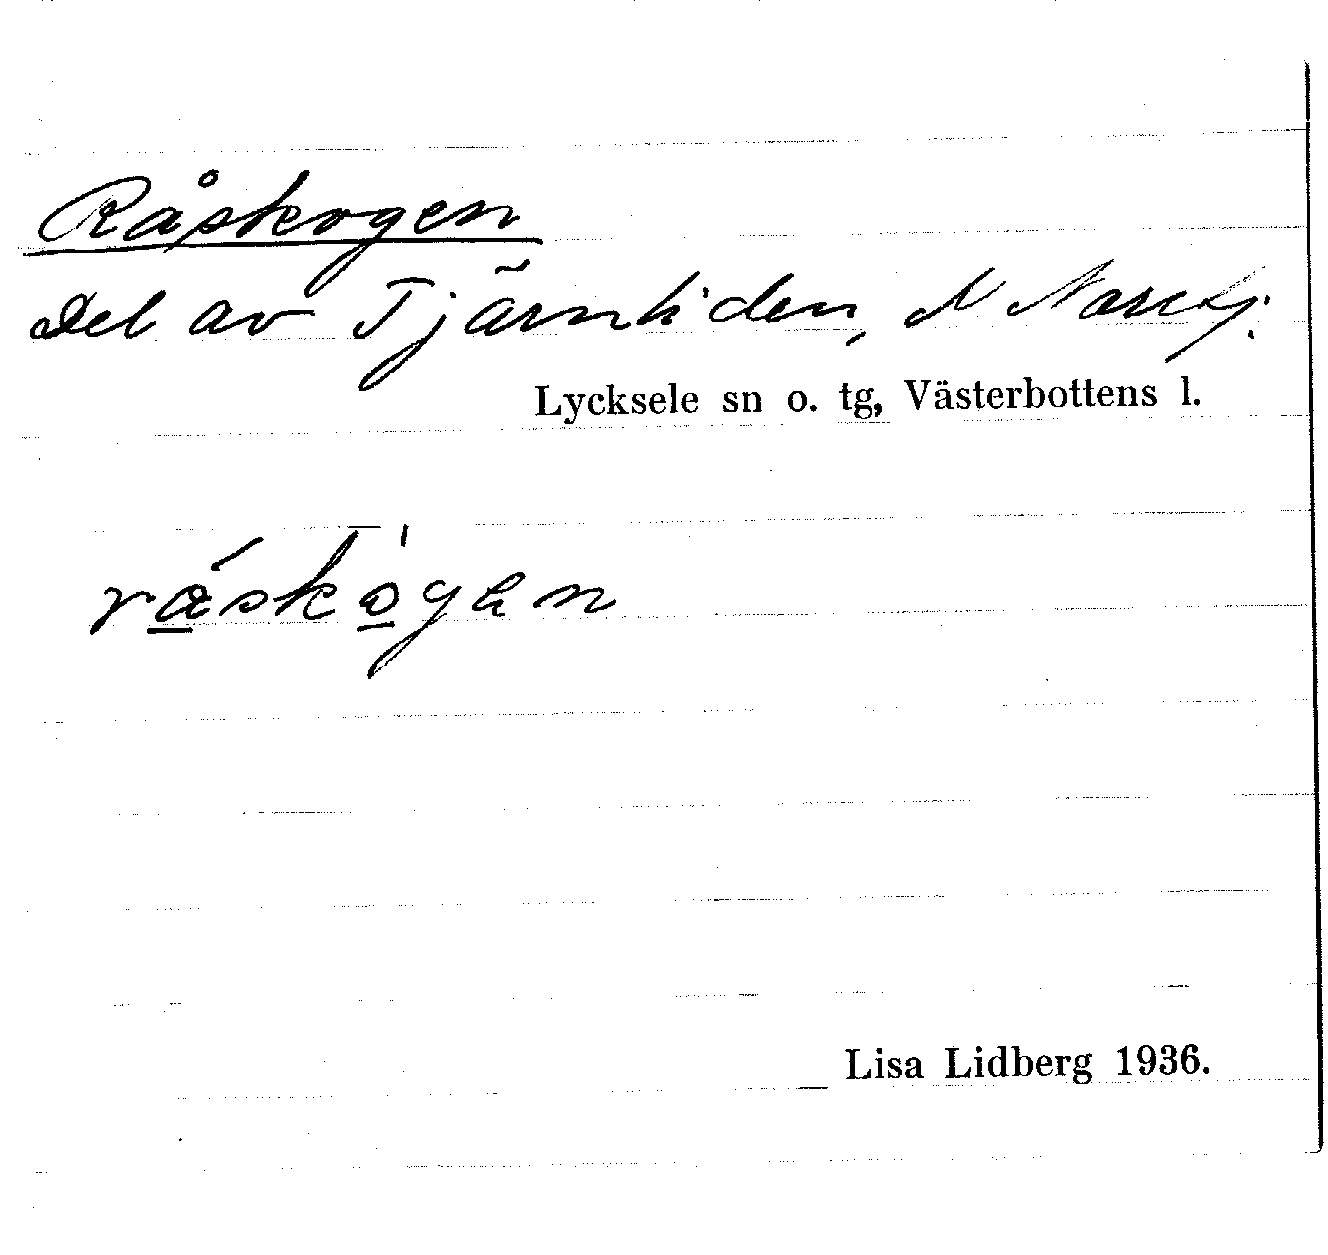 Råskogen
Del av Tjärnliden, N
Lycksele sn o. tg, Västerbottens l.
råskogen
Lisa Lidberg 1936.